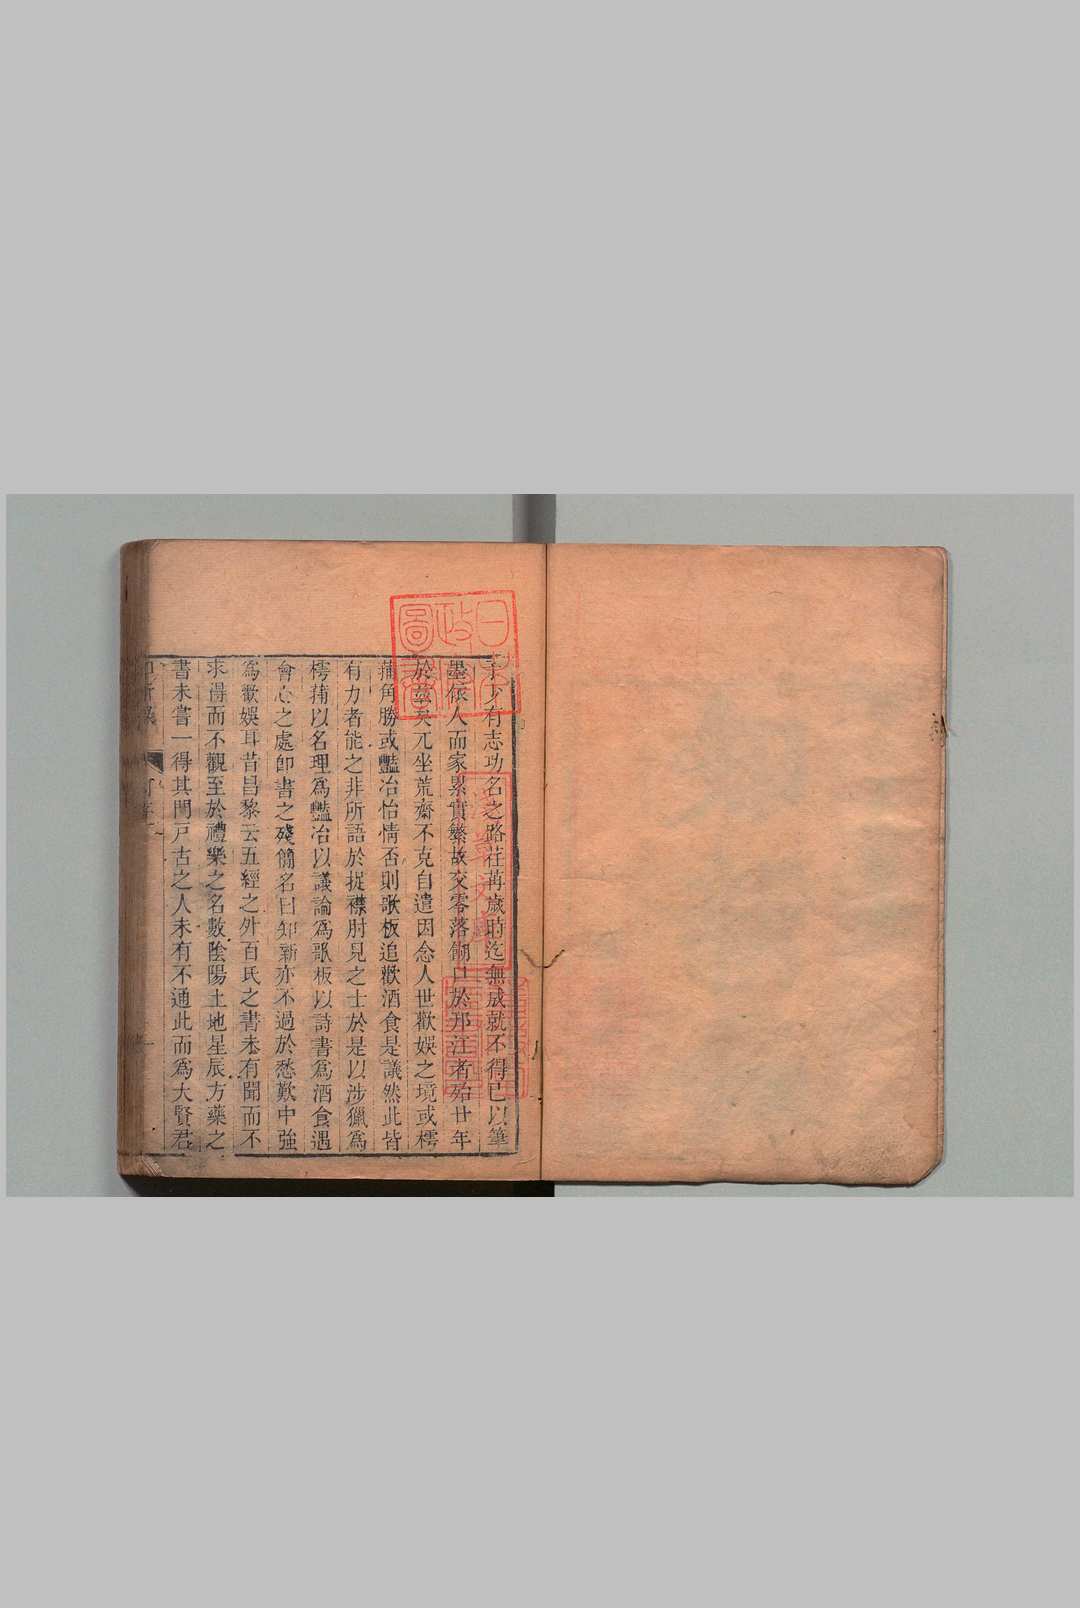 予少有志功名之路荏苒歲時迄無成就不得已以筆
墨依人而家累實繁故交零落餬口於邗江者殆廿年
於茲矣兀坐荒齋不克自遣因念人世歡娛之境或樗
蒱角勝或豔冶怡情否則歌板追歡酒食是議然此皆
有力者能之非所語於捉襟肘見之士於是以涉獵爲
樗蒱以名理爲豔冶以議論爲歌板以詩書爲酒食遇
會心之處卽書之殘簡名曰知新亦不過於愁歎中強
爲歡娛耳昔昌黎云五經之外百氏之書未有聞而不
求得而不觀至於禮樂之名數陰陽土地星辰方藥之
書未嘗一得其門戸古之人未有不通此而爲大賢君
日本政府圖書